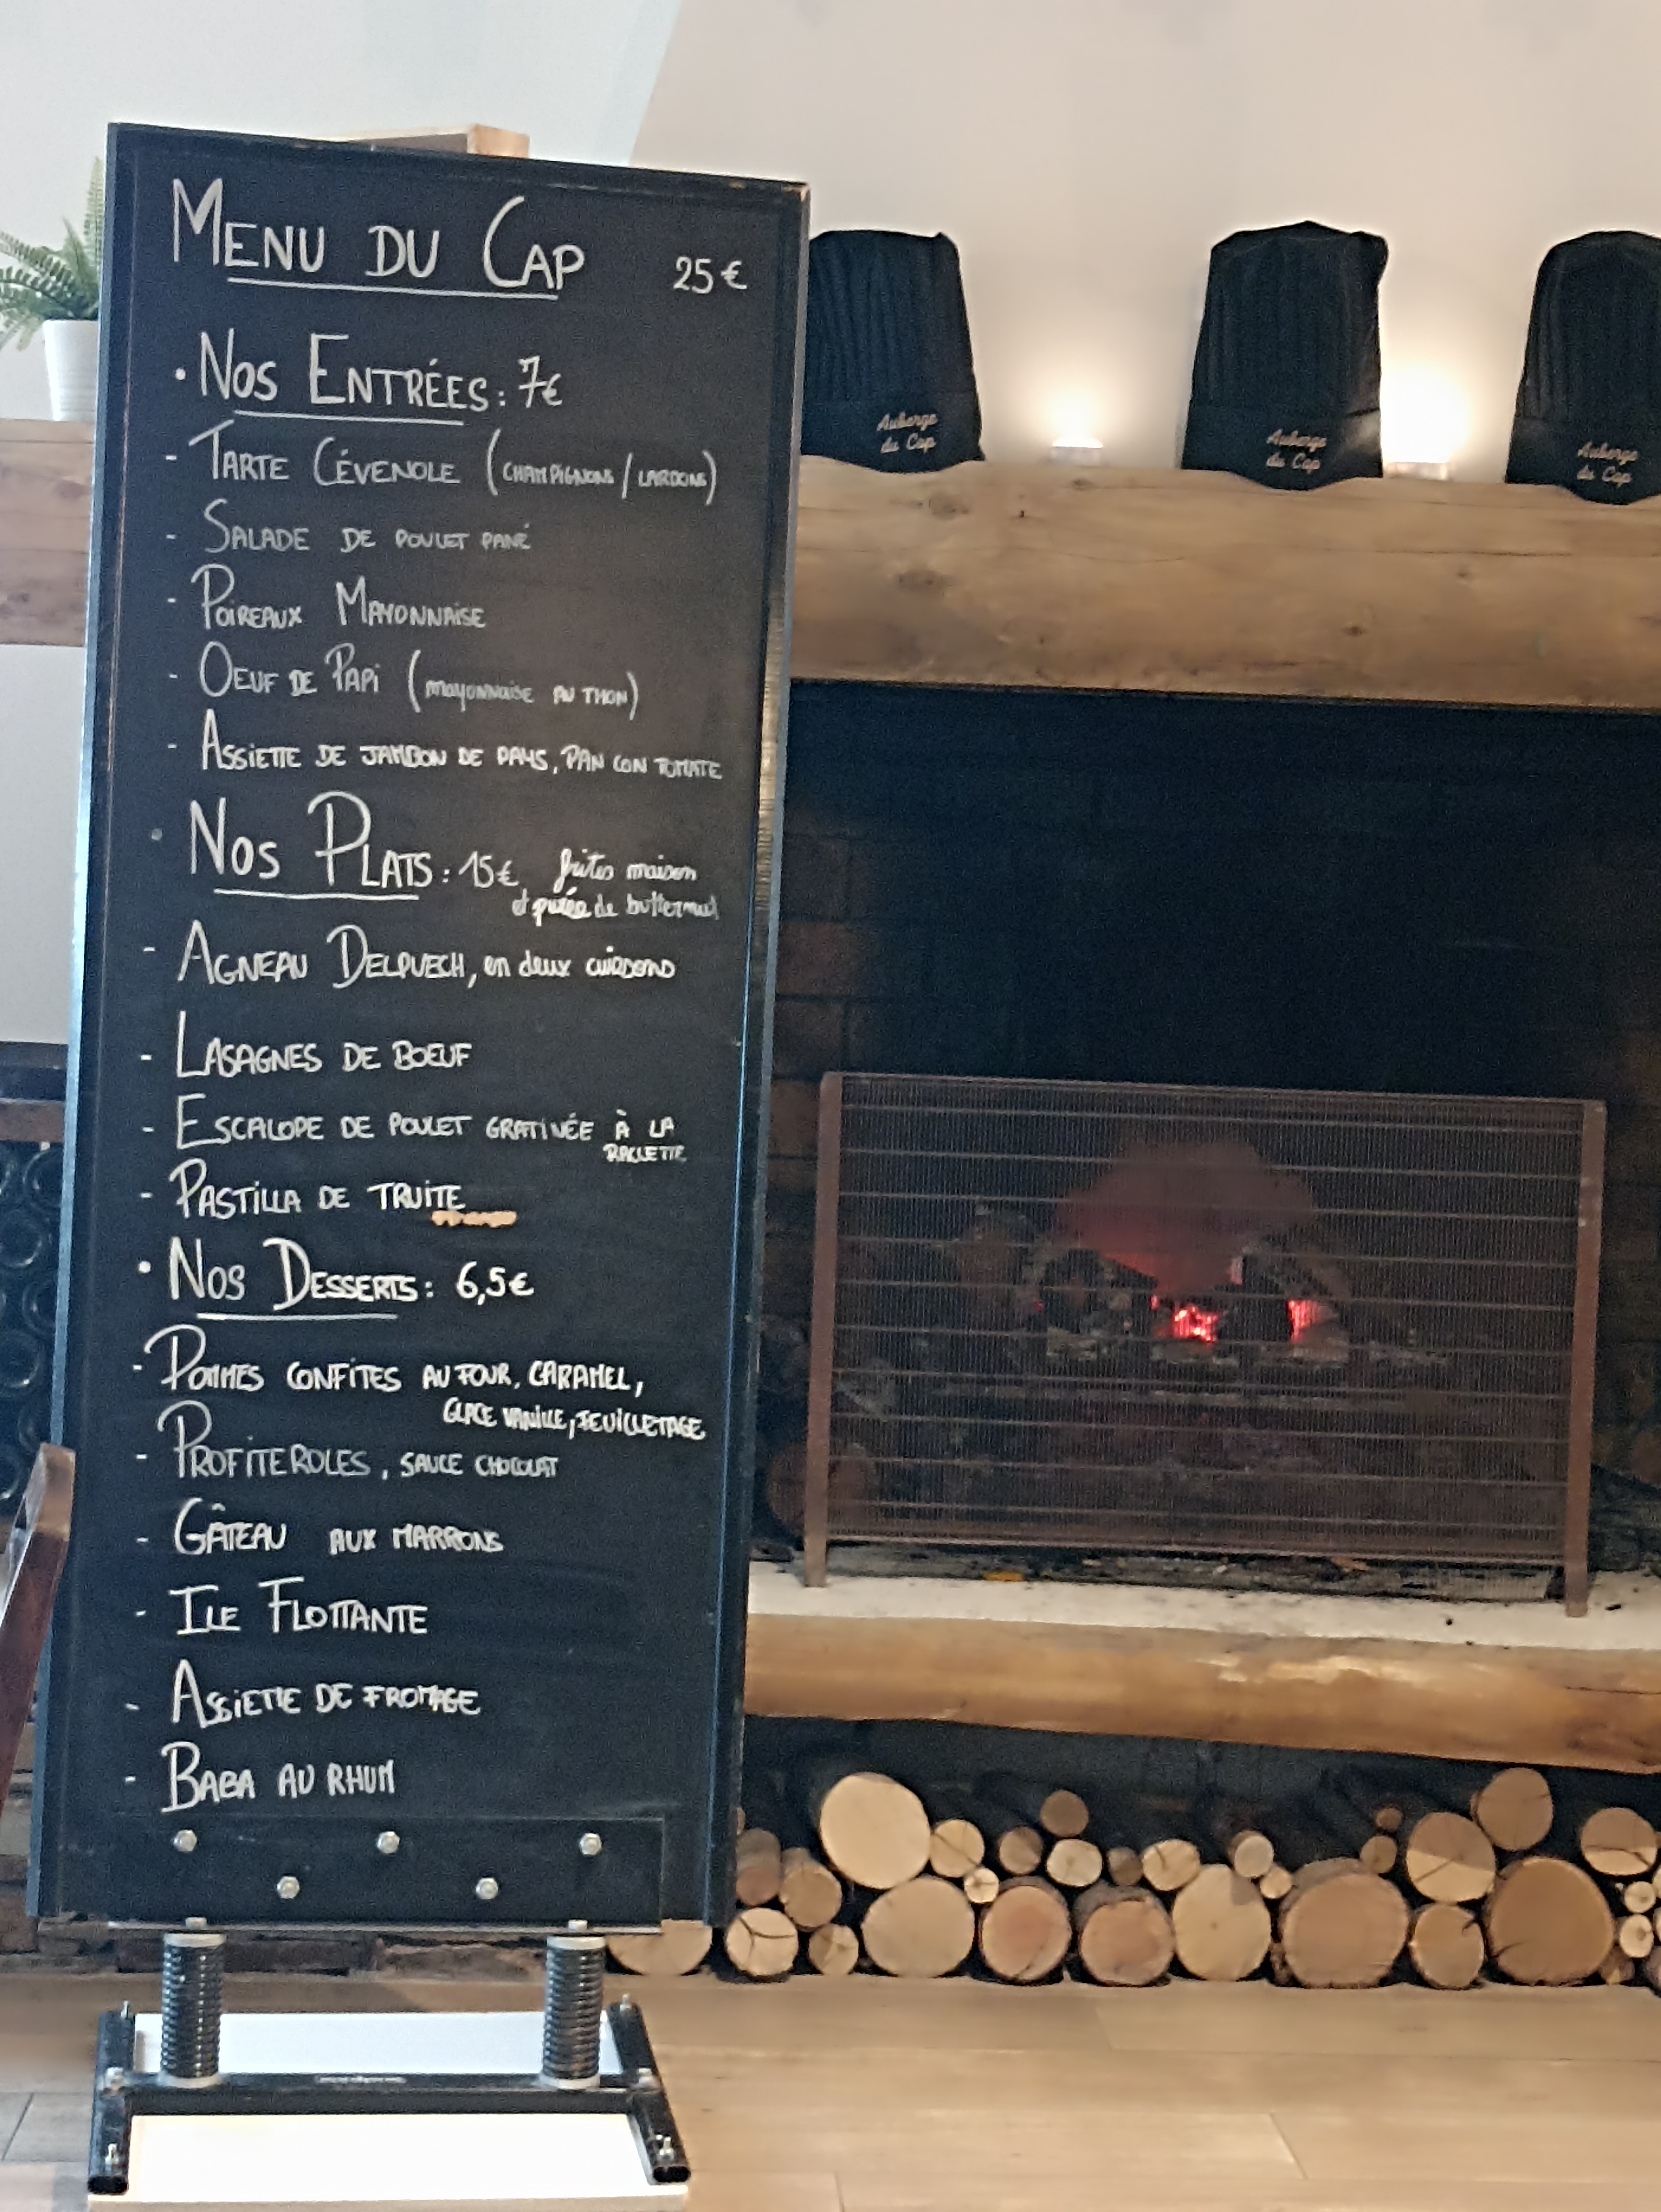 MENU DU CAP 25€
• NOS ENTRÉES : 7€
- TARTE CÉVENOLE (CHAMPIGNONS / LARDONS)
- SALADE DE POULET PANÉ
- POIREAUX MAYONNAISE
- OEUF DE PAPI (mayonnaise AU THON)
- ASSIETTE DE JAMBON DE PAYS, PAN CON TOMATE
• NOS PLATS : 15€ frites maison
et purée de butternut
- AGNEAU DELPUECH, en deux cuissons
- LASAGNES DE BOEUF
- ESCALOPE DE POULET GRATINÉE À LA
RACLETTE
- PASTILLA DE TRUITE
• NOS DESSERTS : 6,5€
- POMMES CONFITES AU FOUR, CARAMEL,
GLACE VANILLE, FEUILLETAGE
- PROFITEROLES, SAUCE CHOCOLAT
- GÂTEAU AUX MARRONS
- ILE FLOTTANTE
- ASSIETTE DE FROMAGE
- BABA AU RHUM
Auberge
du Cap
Auberge
du Cap
Auberge
du Cap